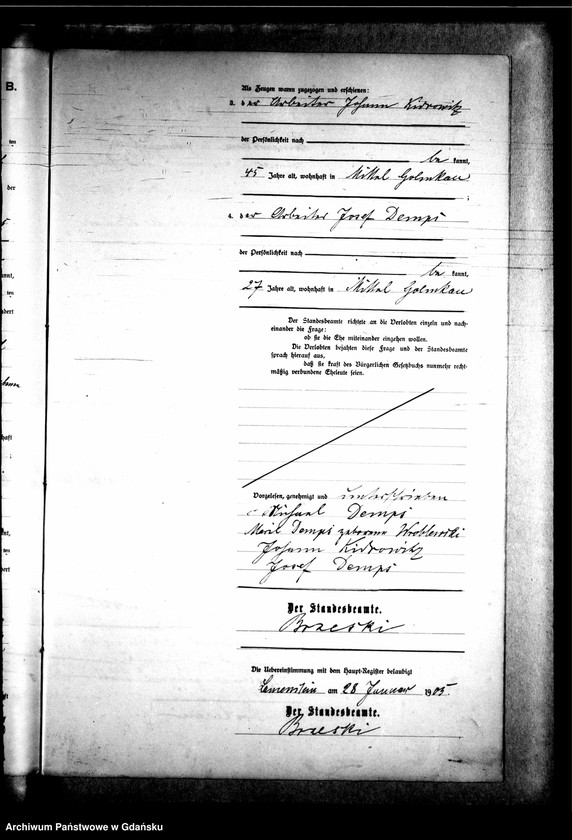 B.
Als Zeugen waren zugezogen und erschienen:
3. der Arbeiter Johann Kidrowitz
der Persönlichkeit nach
be kannt,
45 Jahre alt, wohnhaft in Mittel Golmkau
;
4. der Arbeiter Josef Demps
der Persönlichkeit nach
be kannt,
27 Jahre alt, wohnhaft in Mittel Golmkau
Der Standesbeamte richtete an die Verlobten einzeln und nach-
einander die Frage:
ob sie die Ehe miteinander eingehen wollen.
Die Verlobten bejahten diese Frage und der Standesbeamte
sprach hierauf aus,
daß sie kraft des Bürgerlichen Gesetzbuchs nunmehr recht-
mäßig verbundene Eheleute seien.
Vorgelesen, genehmigt und unterschrieben
Michael Demps
Demps geborene Wroblewski
Johann Kidrowitz
Josef Demps
Der Standesbeamte.
Brzeski
Die Uebereinstimmung mit dem Haupt-Register beglaubigt
am 28 Januar 1905.
Der Standesbeamte.
Brzeski
Archiwum Państwowe w Gdańsku